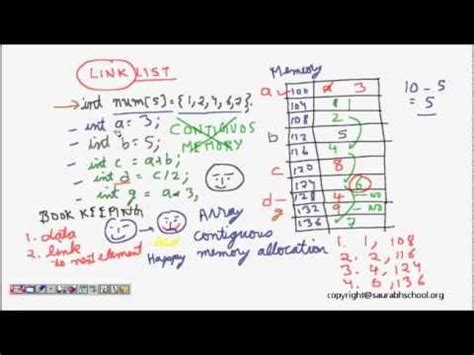 LINK LIST
→ int num[5] = {1,2,4,6,2}.
- int a = 3;
- int b = 5;
- int c = a+b;
- int d = c/2;
- int g = a*3;
CONTIGUOS
MEMORY
BOOK KEEPING
1. data
2. link
to next element
Array
contiguous
memory allocation
Happy
Memory
a 100 3
104 1
108 2
b 112 5
116 4
c 120 8
124 6
d 128 4 - NO
g 132 9 - NO
136 7
10 - 5
= 5
1. 1, 108
2. 2, 116
3. 4, 124
4. 6, 136
copyright@saurabhschool.org